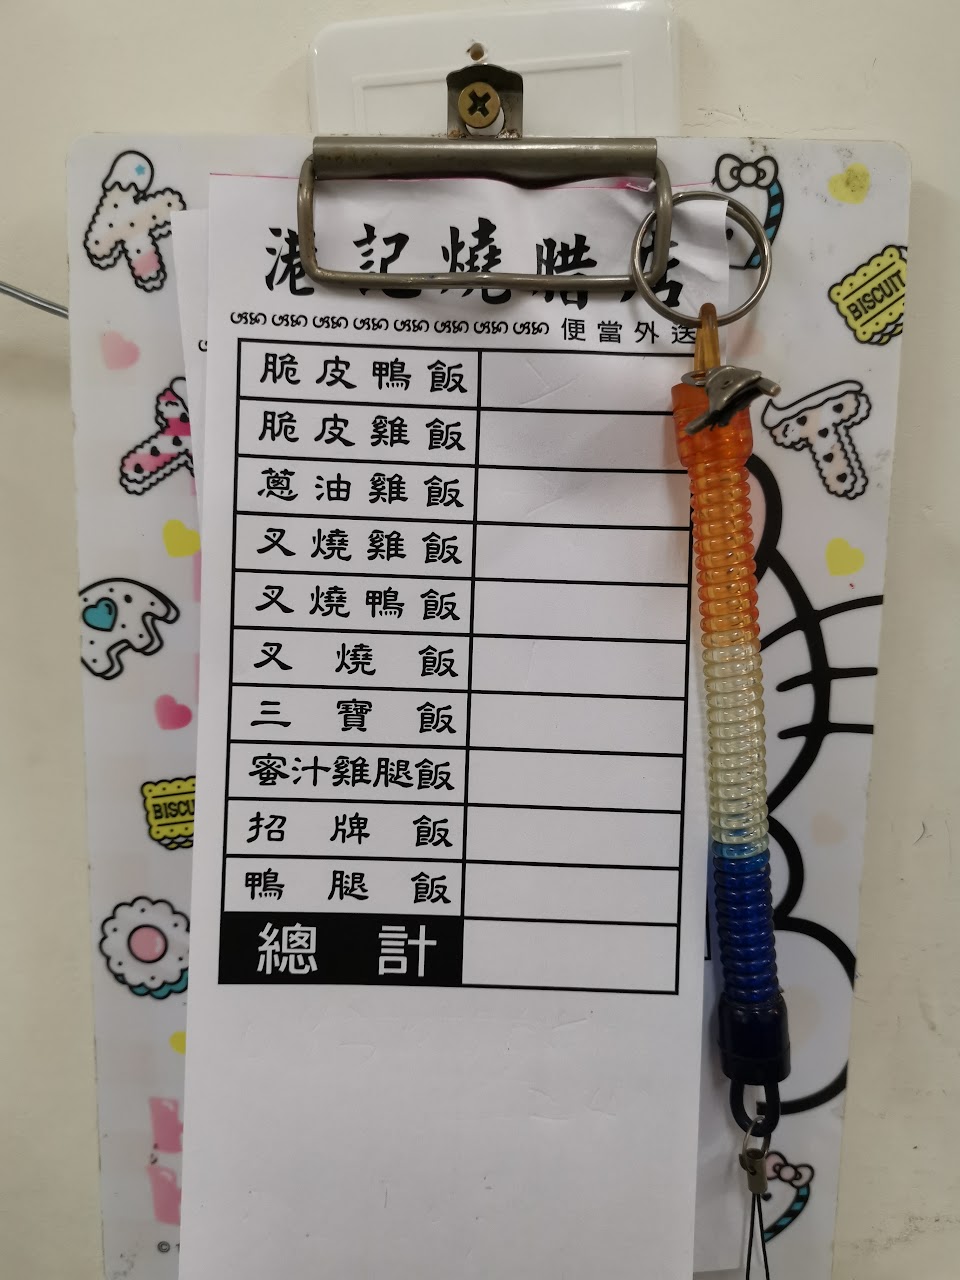 港記燒腊店
便當外送
脆皮鴨飯
脆皮雞飯
蔥油雞飯
叉燒雞飯
叉燒鴨飯
叉燒飯
三寶飯
蜜汁雞腿飯
招牌飯
鴨腿飯
總計
BISCUIT
BISCU